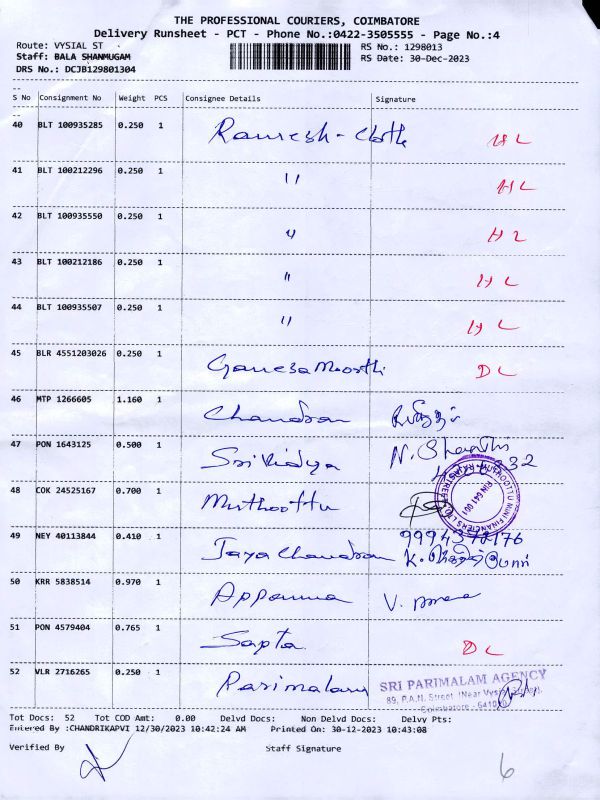 THE PROFESSIONAL COURIERS, COIMBATORE
Delivery Runsheet - PCT - Phone No.:0422-3505555 - Page No.:4
Route: VYSIAL ST RS No.: 1298013
Staff: BALA SHANMUGAM RS Date: 30-Dec-2023
DRS No.: DCJB129801304
S No Consignment No Weight PCS Consignee Details Signature
40 BLT 100935285 0.250 1 Ramesh - Cloth HL
41 BLT 100212296 0.250 1 " HL
42 BLT 100935550 0.250 1 " HL
43 BLT 100212186 0.250 1 " HL
44 BLT 100935507 0.250 1 " HL
45 BLR 4551203026 0.250 1 Ganesa Moorthi DL
46 MTP 1266605 1.160 1 Chandran
47 PON 1643125 0.500 1 Sri Vidya N.
48 COK 24525167 0.700 1 Muthoottu
MUTHOOTTU MINI FINANCIERS LTD
PIN 641 001
49 NEY 40113844 0.410 1 Jaya Chandran
50 KRR 5838514 0.970 1 Appanna V.
51 PON 4579404 0.765 1 Sapta DL
52 VLR 2716265 0.250 1 Parimalam
SRI PARIMALAM AGENCY
89, P.A.N. Street, (Near Vysial Street),
Coimbatore - 641001
Tot Docs: 52 Tot COD Amt: 0.00 Delvd Docs: Non Delvd Docs: Delvy Pts:
Entered By :CHANDRIKAPVI 12/30/2023 10:42:24 AM Printed On: 30-12-2023 10:43:08
Verified By Staff Signature
6